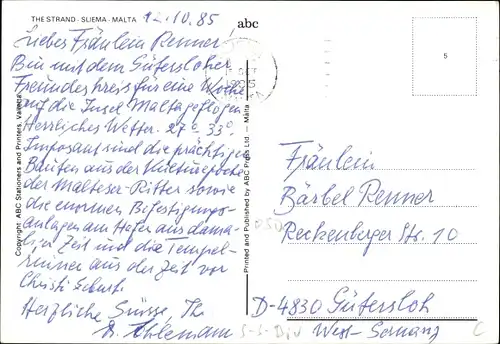 THE STRAND - SLIEMA - MALTA
12.10.85
abc
Liebes Fräulein Renner!
Bin mit dem Gütersloher
Freundeskreis für eine Woche
auf die Insel Malta geflogen
Herrliches Wetter. 27° 33°.
Imposant sind die prächtigen
Bauten aus der Kulturepoche
der Malteser-Ritter sowie
die enormen Befestigungs-
anlagen am Hafen aus dama-
liger Zeit und die Tempel-
ruinen aus der Zeit vor
Christi Geburt.
Herzliche Grüsse, Ihr
Copyright ABC Stationers and Printers, Valletta
Printed and Published by ABC Press Ltd. — Malta
OCT
1985
5
Fräulein
Bärbel Renner
Reckenberger Str. 10
D-4830 Gütersloh
West-Germany